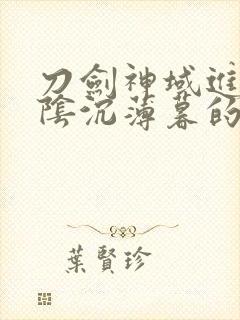 刀劍神域進
陰沉薄暮的
葉賢珍